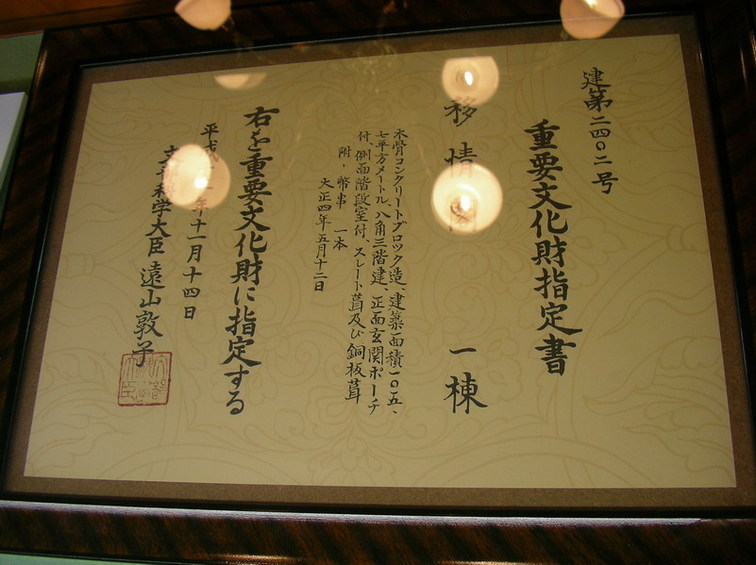 建第二四〇二号
重要文化財指定書
移情 一棟
木骨コンクリートブロック造、建築面積一〇五、
七平方メートル、八角三階建、正面玄関ポーチ
付、側面階段室付、スレート葺及び銅板葺
附・幣串 一本
大正四年五月十二日
右を重要文化財に指定する
平成 年十一月十四日
文 科学大臣 遠山敦子